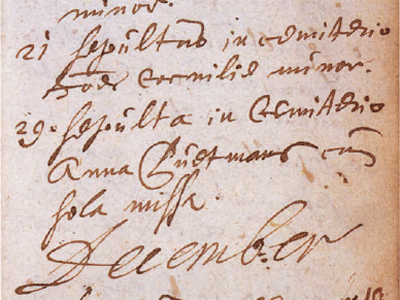 minor.
21 sepultus in cemiterio
Cornilie minor.
29. sepulta in Cemiterio
Anna Guetmans cum
sola missa.
December